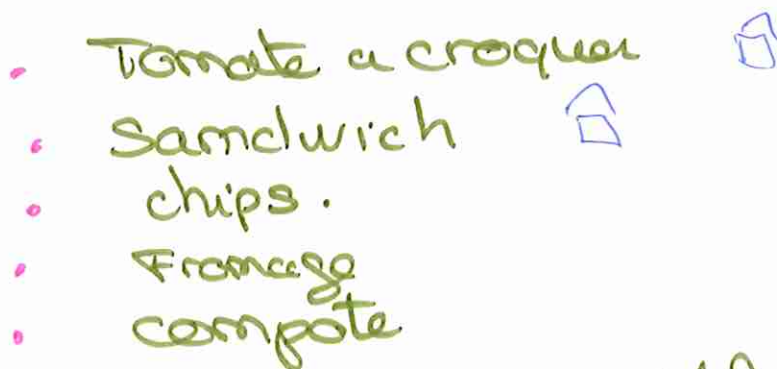 Tomate a croquer
Sandwich
chips.
Fromage
compote